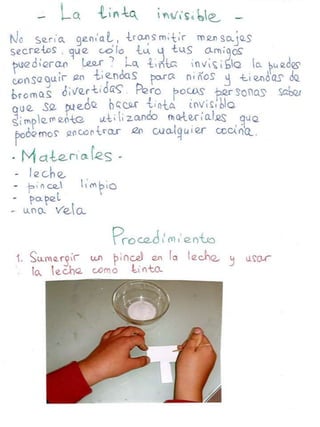 - La tinta invisible -
No seria genial, transmitir mensajes
secretos, que cólo tú y tus amigos
puedieran leer? La tinta invisible la puedes
conseguir en tiendas para niños y tiendas de
bromas divertidas. Pero pocas personas saber
que se puede hacer tinta invisible
simplemente utilizando materiales que
podemos encontrar en cualquier cocina.
- Materiales -
- leche
- pincel limpio
- papel
- una vela
Procedimiento
1. Sumergir un pincel en la leche y usar
la leche como tinta